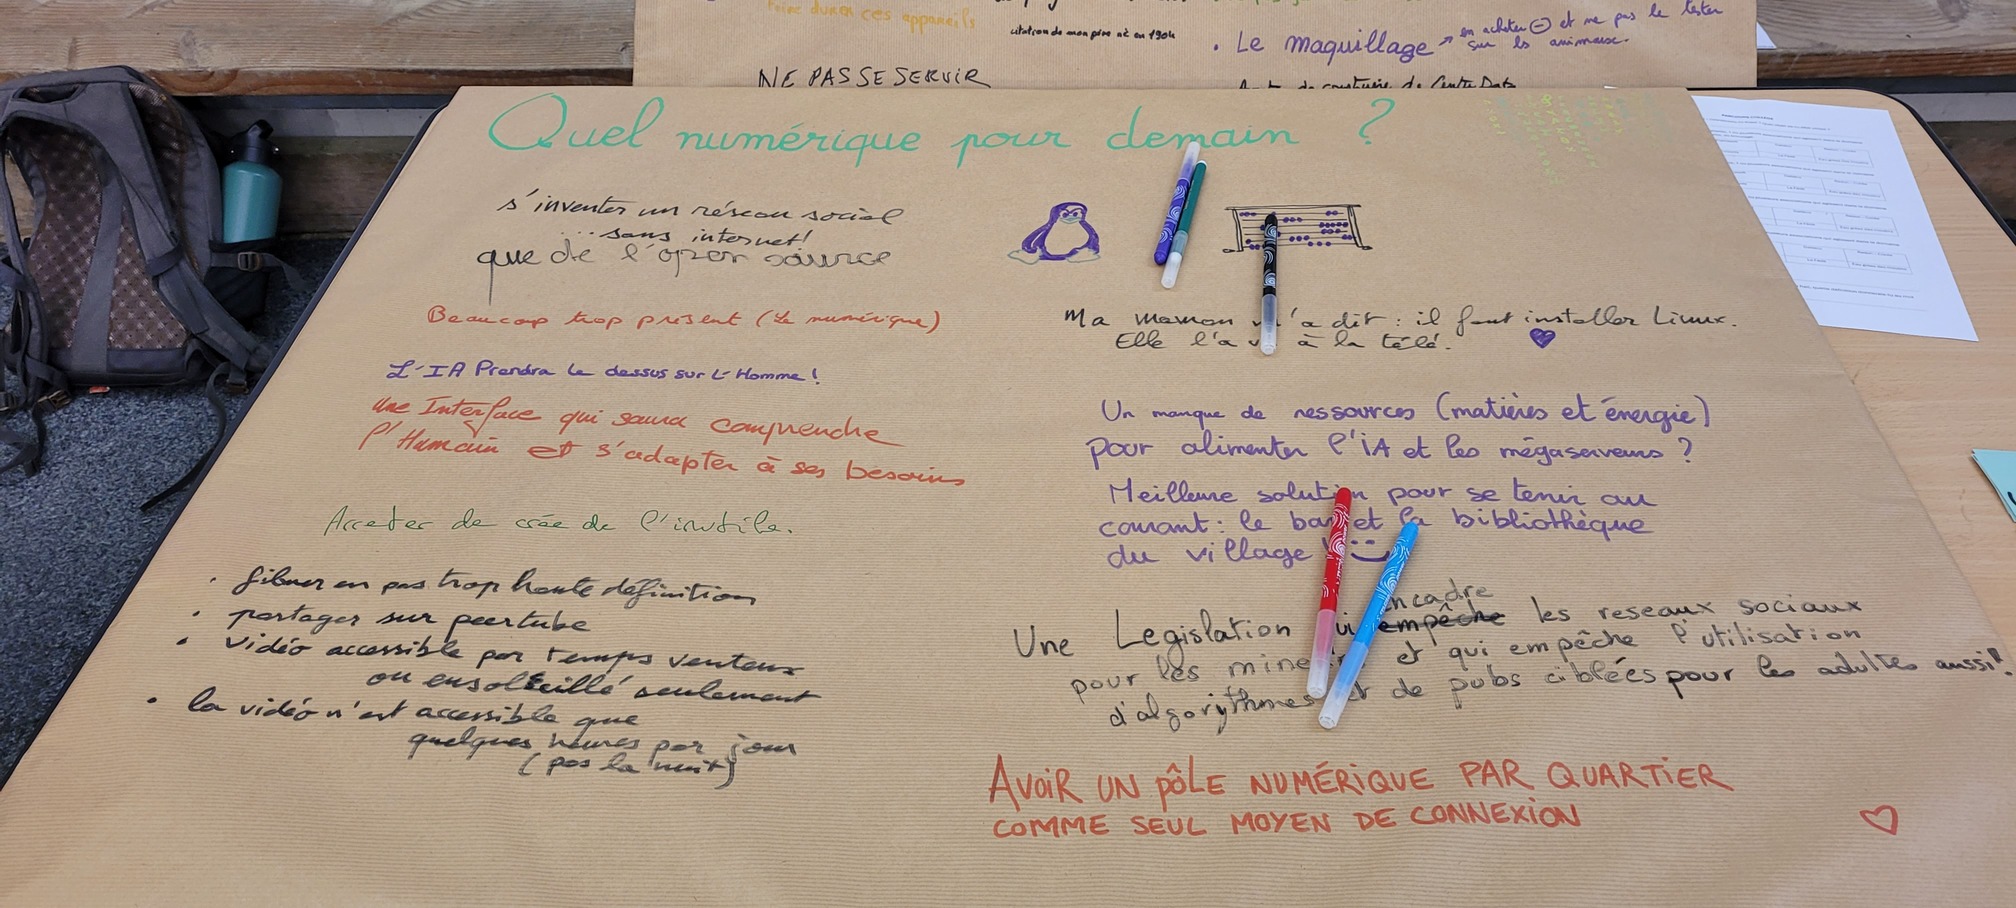 Faire durer ces appareils
citation de mon père né en 1904
• Le maquillage → en acheter ⊖ et ne pas le tester
sur les animaux.
NE PAS SE SERVIR
de construire de Centre Data
Quel numérique pour demain ?
s'inventer un réseau social
... sans internet!
que de l'open source
Beaucoup trop présent (le numérique)
L'IA Prendra le dessus sur L'Homme !
Une Interface qui saura comprendre
l'Humain et s'adapter à ses besoins
Arreter de crée de l'inutile.
• filmer en pas trop haute définition
• partager sur peertube
• vidéo accessible par temps venteux
ou ensoleillé seulement
• la vidéo n'est accessible que
quelques heures par jour
(pas la nuit)
Ma maman m'a dit : il faut installer Linux.
Elle l'a vu à la télé.
Un manque de ressources (matières et énergie)
pour alimenter l'IA et les mégaserveurs ?
Meilleure solution pour se tenir au
courant : le bar et la bibliothèque
du village !
Une Legislation qui empêche encadre les reseaux sociaux
pour les mineurs et qui empêche l'utilisation
d'algorythmes et de pubs ciblées pour les adultes aussi!
AVOIR UN PÔLE NUMÉRIQUE PAR QUARTIER
COMME SEUL MOYEN DE CONNEXION